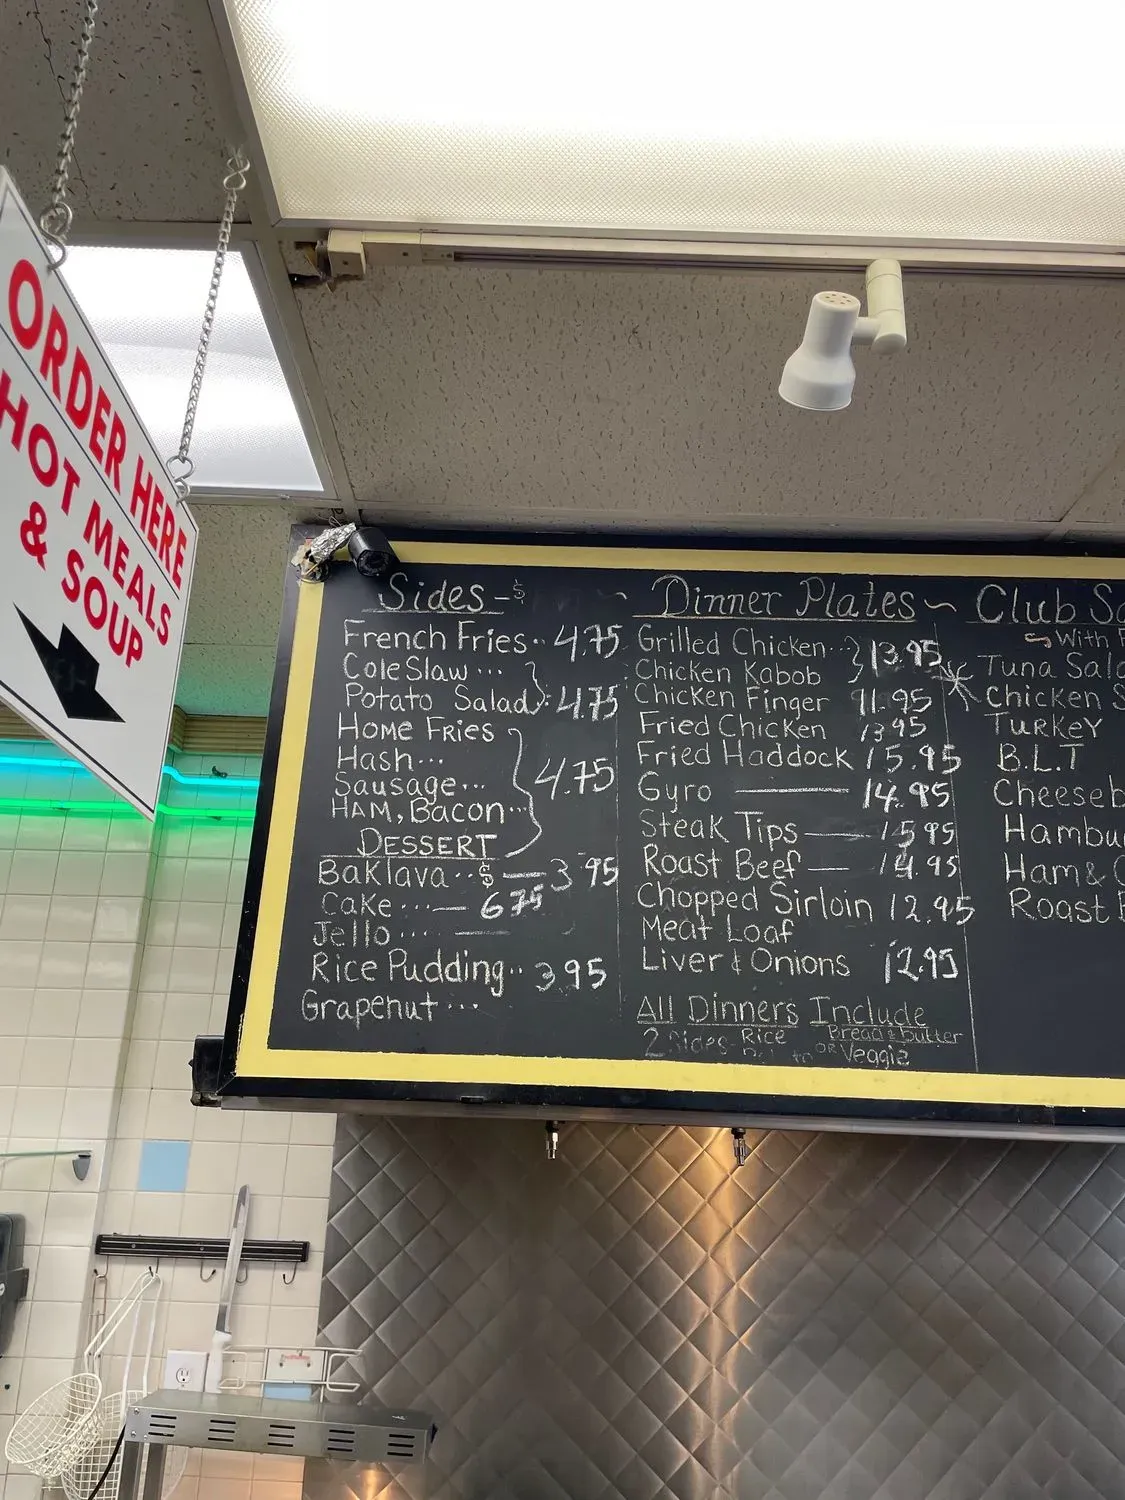 ORDER HERE
HOT MEALS
& SOUP
Sides - $
French Fries.. 4.75
Cole Slaw ...
Potato Salad.. 4.75
HOME FRIES
Hash...
Sausage...
HAM, Bacon.. 4.75
DESSERT
Baklava .. $ — 3.95
Cake ... — 6.75
Jello .... —
Rice Pudding.. 3.95
Grapenut ...
~ Dinner Plates ~
Grilled Chicken..
Chicken Kabob 13.95
Chicken Finger 11.95
Fried Chicken 13.95
Fried Haddock 15.95
Gyro — 14.95
Steak Tips — 15.95
Roast Beef — 14.95
Chopped Sirloin 12.95
Meat Loaf
Liver & Onions 12.95
All Dinners Include
2 Sides - Rice Bread & butter
OR Veggie
Club
With
Tuna
Chicken
TURKEY
B.L.T
Ham &
Roast